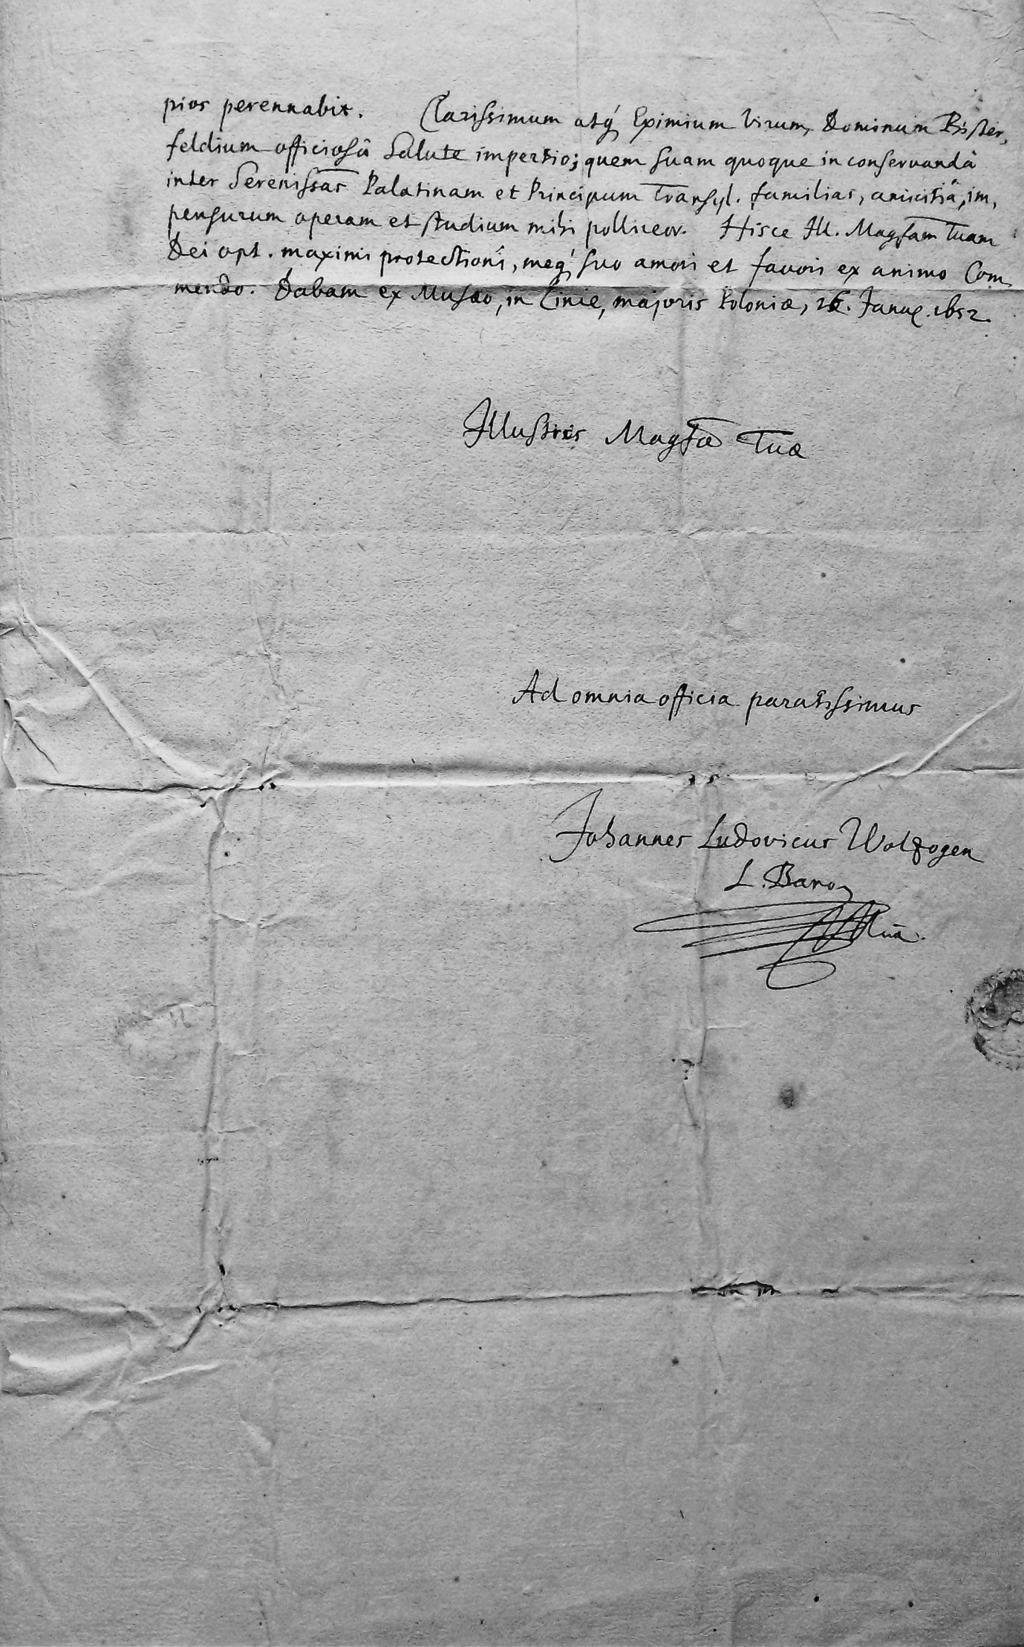 pios perennabit. Clarissimum atq́ Eximium Virum, Dominum Bister,
feldium officiosâ Salute impertio; quem suam quoque in conservandâ
inter Serenissas Palatinam et Principum Transyl. familias, amicitiâ, im,
pensurum operam et studium mihi polliceor. Hisce Ill. Magfam Tuam
Dei opt. maximi protectioni, meq́ suo amori et favori ex animo Com,
mendo. Dabam ex Musæo, in Cinie, majoris Poloniæ, 26. Januar. 1652.
Illustris Magfæ Tuæ
Ad omnia officia paratissimus
Johannes Ludovicus Wolzogen
L. Baro